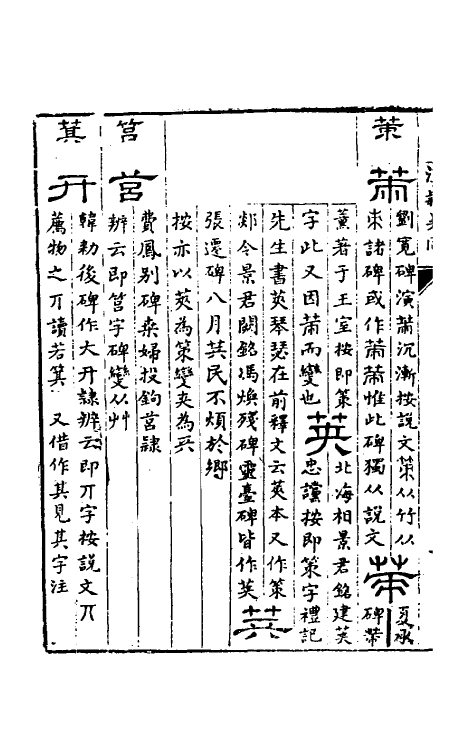 策
䇿劉寬碑演䇿沉漸按說文策从竹从
朿諸碑或作䇿䇿惟此碑獨从說文䇿夏承碑䇿
薰著于王室按即策莢北海相景君銘建莢
字此又因䇿而變也忠讜按即策字禮記
先生書莢琴瑟在前釋文云莢本又作策
郯令景君闕銘馮煥殘碑靈臺碑皆作莢
張遷碑八月其民不煩於鄉
按亦以莢為策變夾為
筥
莒費鳳別碑棄婦投鉤莒隸
辨云即筥字碑變从艸
箕
丌韓勑後碑作大丌隸辨云即丌字按說文丌
薦物之丌讀若箕 又借作其見其字注